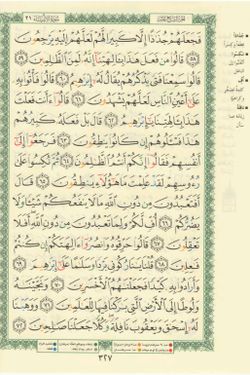 فَجَعَلَهُمْ جُذَٰذًا إِلَّا كَبِيرًا لَّهُمْ لَعَلَّهُمْ إِلَيْهِ يَرْجِعُونَ
٥٨ قَالُوا۟ مَن فَعَلَ هَٰذَا بِـَٔالِهَتِنَآ إِنَّهُۥ لَمِنَ ٱلظَّٰلِمِينَ ٥٩
قَالُوا۟ سَمِعْنَا فَتًى يَذْكُرُهُمْ يُقَالُ لَهُۥٓ إِبْرَٰهِيمُ ٦٠ قَالُوا۟ فَأْتُوا۟ بِهِۦ
عَلَىٰٓ أَعْيُنِ ٱلنَّاسِ لَعَلَّهُمْ يَشْهَدُونَ ٦١ قَالُوٓا۟ ءَأَنتَ فَعَلْتَ
هَٰذَا بِـَٔالِهَتِنَا يَٰٓإِبْرَٰهِيمُ ٦٢ قَالَ بَلْ فَعَلَهُۥ كَبِيرُهُمْ
هَٰذَا فَسْـَٔلُوهُمْ إِن كَانُوا۟ يَنطِقُونَ ٦٣ فَرَجَعُوٓا۟ إِلَىٰٓ
أَنفُسِهِمْ فَقَالُوٓا۟ إِنَّكُمْ أَنتُمُ ٱلظَّٰلِمُونَ ٦٤ ثُمَّ نُكِسُوا۟ عَلَىٰ
رُءُوسِهِمْ لَقَدْ عَلِمْتَ مَا هَٰٓؤُلَآءِ يَنطِقُونَ ٦٥
قَالَ أَفَتَعْبُدُونَ مِن دُونِ ٱللَّهِ مَا لَا يَنفَعُكُمْ شَيْـًٔا وَلَا
يَضُرُّكُمْ ٦٦ أُفٍّ لَّكُمْ وَلِمَا تَعْبُدُونَ مِن دُونِ ٱللَّهِ أَفَلَا
تَعْقِلُونَ ٦٧ قَالُوا۟ حَرِّقُوهُ وَٱنصُرُوٓا۟ ءَالِهَتَكُمْ إِن كُنتُمْ
فَٰعِلِينَ ٦٨ قُلْنَا يَٰنَارُ كُونِى بَرْدًا وَسَلَٰمًا عَلَىٰٓ إِبْرَٰهِيمَ ٦٩
وَأَرَادُوا۟ بِهِۦ كَيْدًا فَجَعَلْنَٰهُمُ ٱلْأَخْسَرِينَ ٧٠ وَنَجَّيْنَٰهُ
وَلُوطًا إِلَى ٱلْأَرْضِ ٱلَّتِى بَٰرَكْنَا فِيهَا لِلْعَٰلَمِينَ ٧١ وَوَهَبْنَا
لَهُۥٓ إِسْحَٰقَ وَيَعْقُوبَ نَافِلَةً وَكُلًّا جَعَلْنَا صَٰلِحِينَ ٧٢
٣٢٧